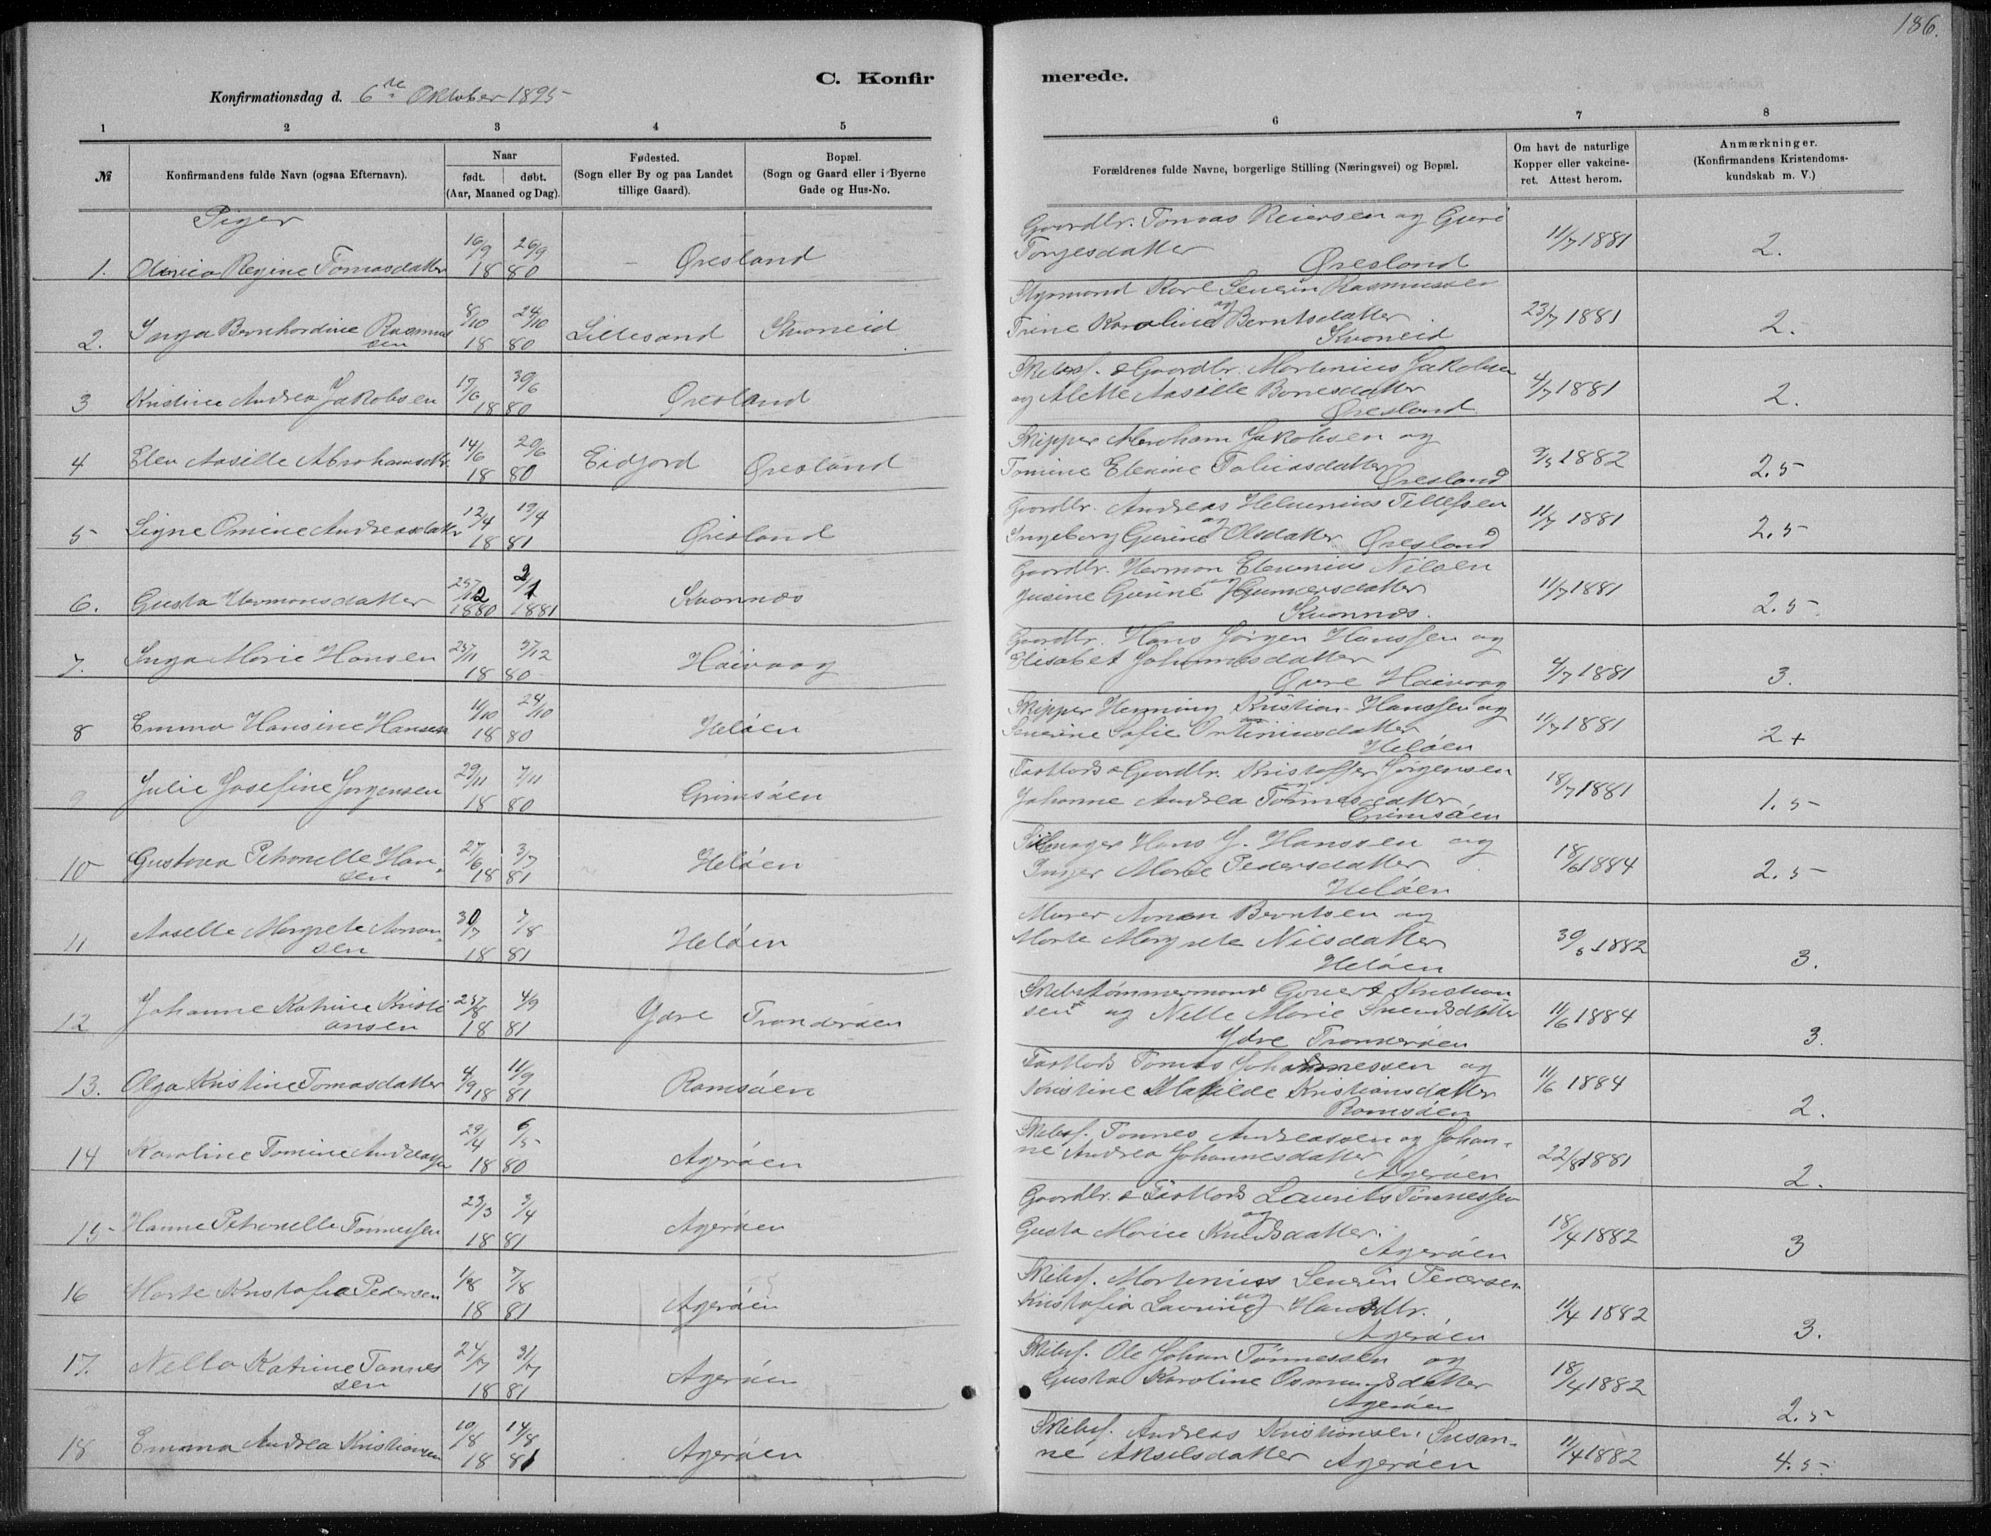 186.
C. Konfir
merede.
Konfirmationsdag d. 6te Oktober 1895
1 2 3 4 5 6 7 8
№ Konfirmandens fulde Navn (ogsaa Efternavn). Naar født. døbt. (Aar, Maaned og Dag).
Fødested. (Sogn eller By og paa Landet tillige Gaard).
Bopæl. (Sogn og Gaard eller i Byerne Gade og Hus-No.
Forældrenes fulde Navne, borgerlige Stilling (Næringsvei) og Bopæl.
Om havt de naturlige Kopper eller vakcineret. Attest herom.
Anmærkninger. (Konfirmandens Kristendomskundskab m. V.)
Piger
1. Regine Tomasdatter 16/9 26/9 1880 Øresland
Gaardbr. Tomas Reiersen og Guri
Torjesdatter Øresland 11/7 1881 2.
2. Inga Bernhardine Rasmus
sen 8/10 24/10 1880 Lillesand Kvaneid
Styrmand Karl Severin Rasmussen
og
Trine Karoline Berntsdatter
Kvaneid 23/7 1881 2.
3 Kristine Andrea Jakobsen 17/6 30/6 1880 Øresland
Skibsf. & Gaardbr. Martinius Jakobsen
og Alette Aasille Bornesdatter
Øresland 4/7 1881 2.
4 Elen Aasille Abrahamsdtr. 14/6 20/6 1880 Eidjord Øresland
Skipper Abraham Jakobsen og
Tomine Elenine Tobiasdatter
Øresland 9/5 1882 2.5
5 Signe Omine Andreasdatter 12/4 19/4 1881 Øresland
Gaardbr. Andreas Helmenius Tellefsen
og
Ingeborg Gurine Olsdatter Øresland 11/7 1881 2.5
6. Gusta Hermansdatter 25/12 1880 2/1 1881 Kvannæs
Gaardbr. Herman Elenius Nilsen
og
Gurine Gunnersdatter
Kvannæs. 11/7 1881 2.5
7. Inga Marie Hansen 25/11 5/12 1880 Haivaag
Gaardbr. Hans Jørgen Hanssen og
Elisabet Johannesdatter
Øvre Haivaag 4/7 1881 3.
8 Emma Hansine Hansen 11/10 24/10 1880 Heløen
Skipper Henning Kristian Hanssen og
Severine Sofie Ortiniusdatter
Heløen 11/7 1881 2+
9 Julie Josefine Jørgensen 29/11 7/11 1880 Grimsøen
Fastlods & Gaardbr. Kristoffer Jørgensen
og
Johanne Andrea Tønnesdatter
Grimsøen 18/7 1881 1.5
10 Gustava Petronelle Han-
sen 27/6 3/7 1881 Heløen
Hans J. Hanssen og
Inger Marie Pedersdatter
Heløen 18/6 1884 2.5
11 Aaselle Margrete Aanon-
sen 30/7 7/8 1881 Heløen
Murer Aanon Berntsen og
Marte Margrete Nilsdatter
Heløen 30/5 1882 3.
12 Johanne Katrine Kristi
ansen 25/8 4/9 1881 Ydre Tronderøen
Skibstømmermand Govert Kristian
sen og Nelle Marie Svendsdatter
Ydre Tronderøen 11/6 1884 3.
13. Olga Kristine Tomasdatter 4/9 11/9 1881 Ramsøen
Fastlods Tomas Johannessen og
Kristine Matilde Kristiansdatter
Ramsøen 11/6 1884 2.
14 Karoline Tomine Andreassen 29/4 6/5 1880 Agerøen
Skibsf. Tønnes Andreassen og Johan-
ne Andrea Johannesdatter
Agerøen 22/8 1881 2.
15 Hanne Petronelle Tønnessen 23/3 3/4 1881 Agerøen
Gaardbr. & Fastlods Laurits Tønnessen
og
Gusta Marie Knudsdatter.
Agerøen 18/4 1882 3
16 Marte Kristofia Pedersen 1/8 7/8 1881 Agerøen
Skibsf. Martinius Severin Pedersen
og
Kristofia Lavine Hansdtr.
Agerøen 11/4 1882 3.
17. Nella Katrine Tønnes
sen 24/7 31/7 1881 Agerøen
Skibsf. Ole Johan Tønnessen og
Gusta Karoline Osmundsdatter
Agerøen 18/4 1882 2.5
18 Emma Andrea Kristiansen 10/8 14/8 1881 Agerøen
Skibsf. Andreas Kristiansen, Susan-
ne Akselsdatter Agerøen 11/4 1882 4.5